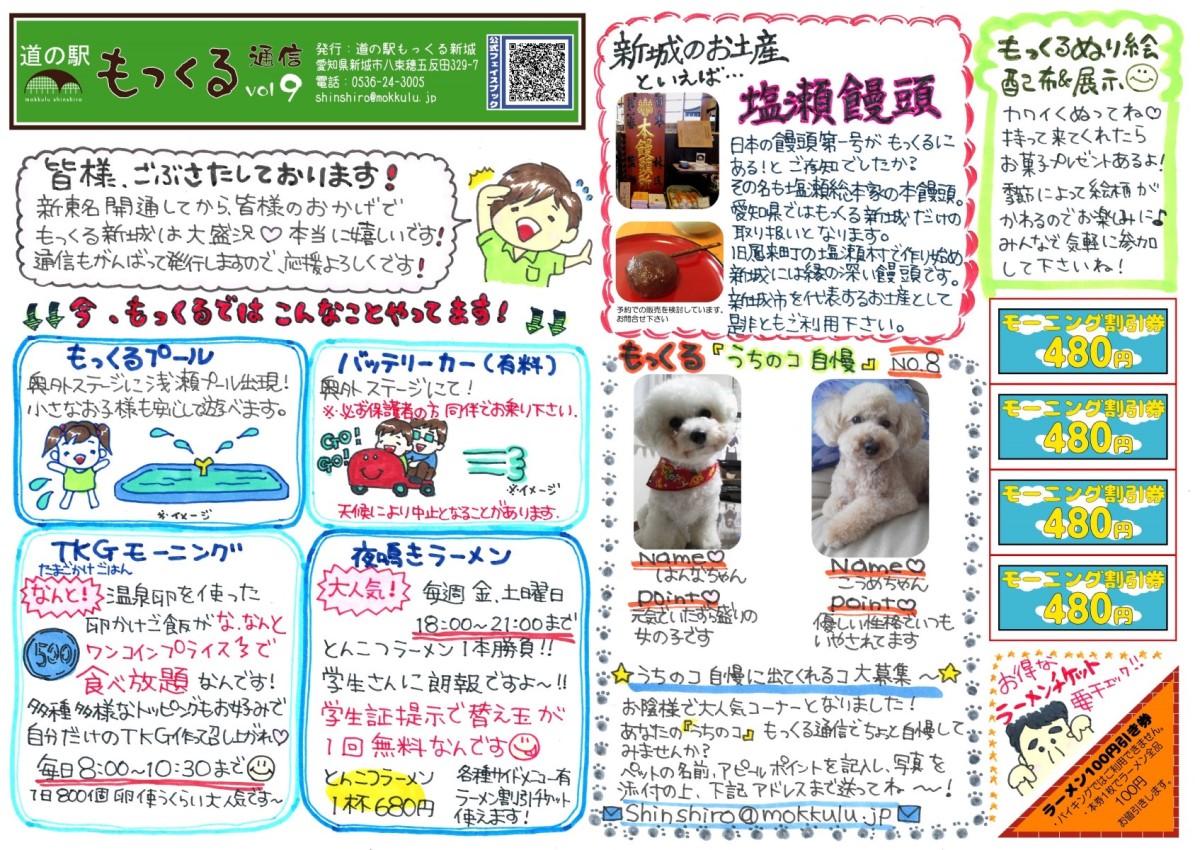 道の駅
mokkulu shinshiro
もっくる 通信
vol 9
発行:道の駅もっくる新城
愛知県新城市八束穂五反田329-7
電話:0536-24-3005
shinshiro@mokkulu.jp
公式フェイスブック
皆様、ごぶさたしております!
新東名開通してから、皆様のおかげで
もっくる新城は大盛況♡本当に嬉しいです!
通信もがんばって発行しますので、応援よろしくです!
今、もっくるでは こんなことやってます!
もっくるプール
奥外ステージに浅瀬プール出現!
小さなお子様も安心して遊べます。
※イメージ
バッテリーカー(有料)
奥外ステージにて!
※必ず保護者の方同伴でお乗り下さい.
GO!
GO!
※イメージ
天候により中止となることがあります.
TKGモーニング
たまごかけごはん
なんと!
温泉卵を使った
卵かけご飯が な、なんと
500
ワンコインプライスで
食べ放題なんです!
多種多様なトッピングもお好みで
自分だけのTKG作って召し上がれ♡
毎日8:00~10:30まで
1日800個卵使うくらい大人気です~
夜鳴きラーメン
大人気!
毎週 金、土曜日
18:00~21:00まで
とんこつラーメン1本勝負!!
学生さんに朗報ですよ~!!
学生証提示で替え玉が
1回無料なんです
とんこつラーメン
1杯680円
各種サイドメニュー有
ラーメン割引チケット
使えます!
新城のお土産
といえば…
塩瀬饅頭
本饅頭
日本の饅頭第一号がもっくるに
ある!とご存知でしたか?
その名も塩瀬総本家の本饅頭。
愛知県ではもっくる新城だけの
取り扱いとなります。
旧鳳来町の塩瀬村で作り始め
新城には縁の深い饅頭です。
新城市を代表するお土産として
是非ともご利用下さい。
予約での販売を検討しています。
お問合せ下さい
もっくる『うちのコ 自慢』 NO.8
Name♡
はんなちゃん
Point♡
元気でいたずら盛りの
女の子です
Name♡
こうめちゃん
Point♡
優しい性格でいつも
いやされてます
☆うちのコ 自慢に出てくれるコ 大募集~☆
お陰様で大人気コーナーとなりました!
あなたの『うちのコ』もっくる通信でちょと自慢して
みませんか?
ペットの名前、アピールポイントを記入し、写真を
添付の上、下記アドレスまで送ってね~!
Shinshiro@mokkulu.jp
もっくるぬり絵
配布&展示
カワイくぬってね♡
持って来てくれたら
お菓子プレゼントあるよ!
季節によって絵柄が
かわるのでお楽しみに♪
みんなで気軽に参加
して下さいね!
モーニング割引券
480円
モーニング割引券
480円
モーニング割引券
480円
モーニング割引券
480円
お得な
ラーメンチケット
要チェック!!
ラーメン100円引き券
・バイキングではご利用できません。
・本券1枚でラーメン全品
100円
お値引きします。